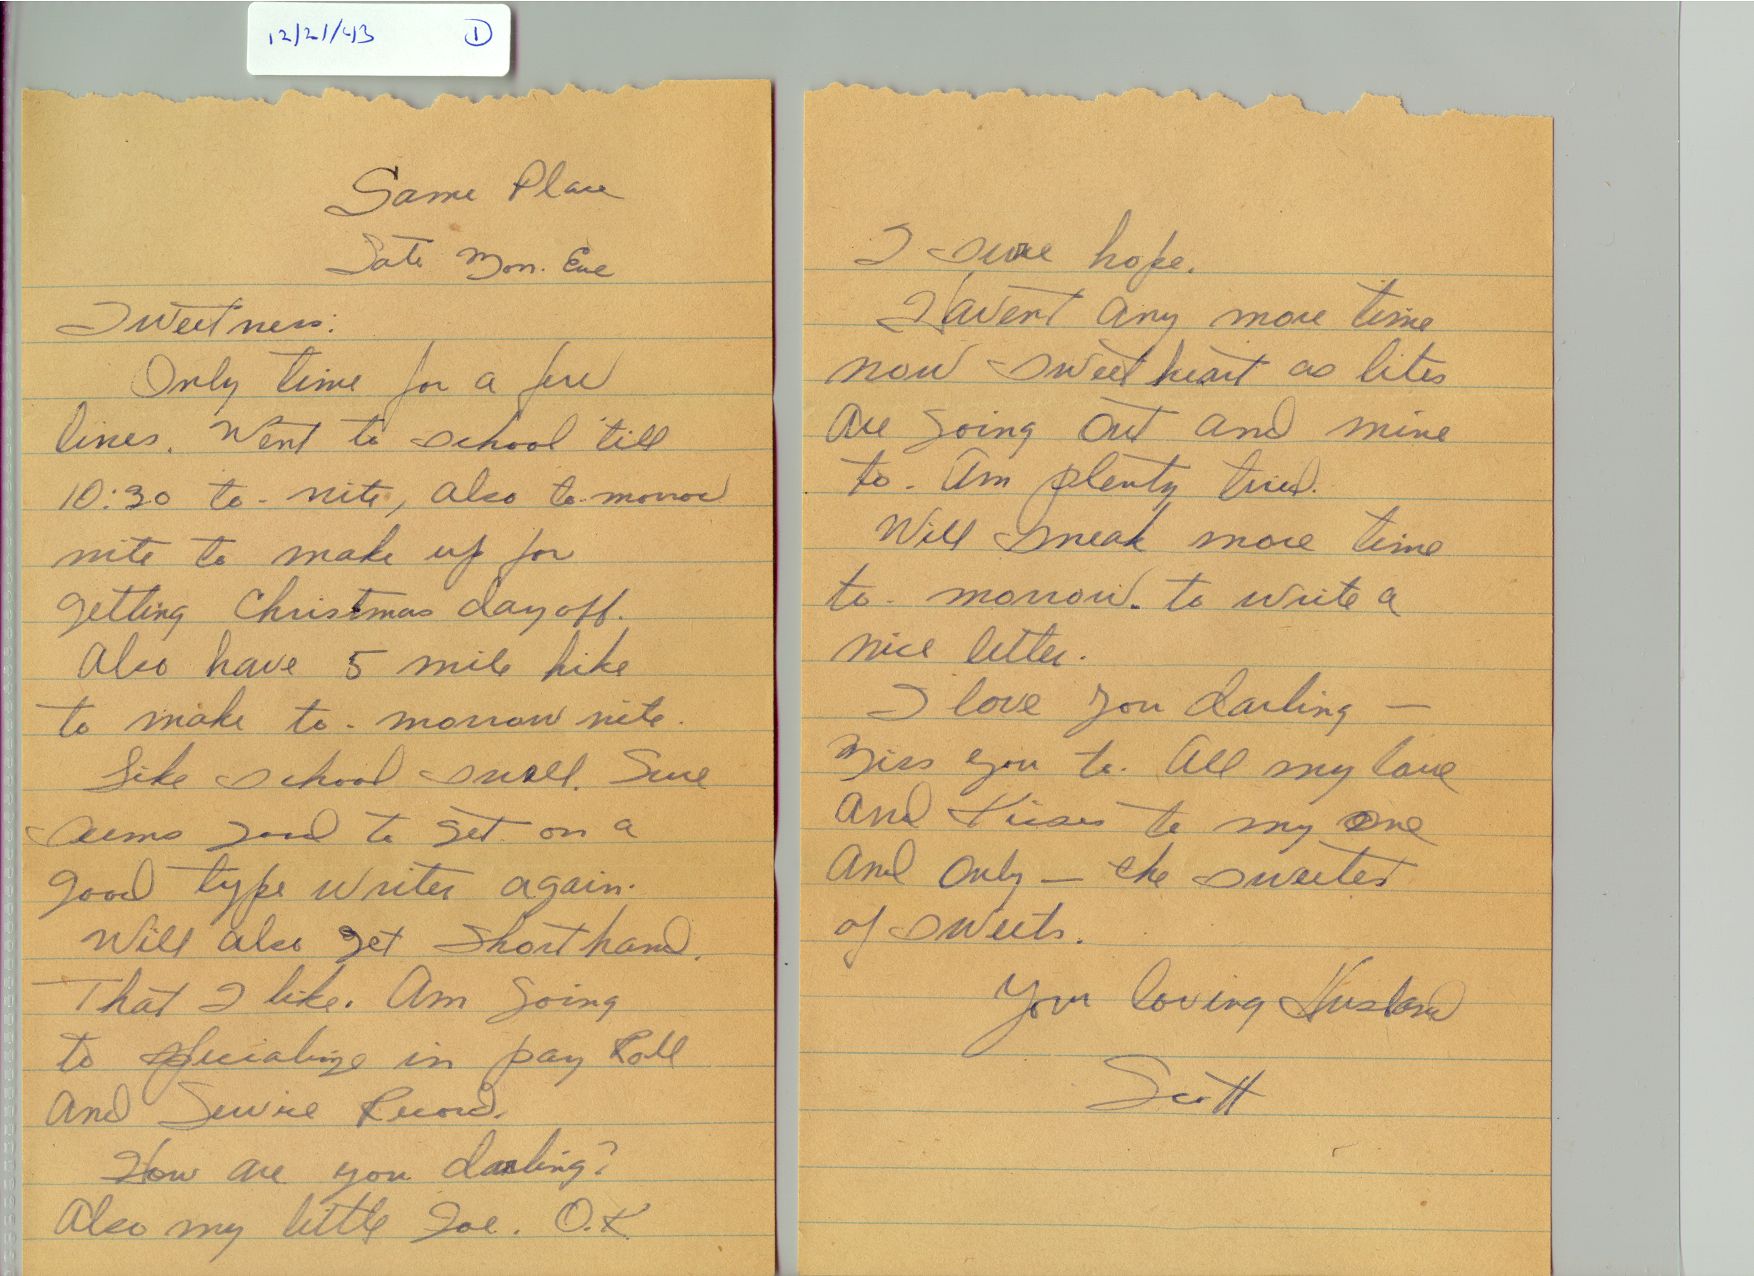 12/21/43 1
Same Place
Late Mon. Eve
Sweetness:
Only time for a few
lines. Went to school 'till
10:30 to-nite, also to-morrow
nite to make up for
getting Christmas day off.
Also have 5 mile hike
to make to-morrow nite.
Like school swell. Sure
seems good to get on a
good type writer again.
Will also get Shorthand.
That I like. Am going
to specialize in pay Roll
And Service Record.
How are you darling?
Also my little Joe. O.K.
I sure hope.
Havent any more time
now sweetheart as lites
are going out and mine
to. Am plenty tired.
Will sneak more time
to-morrow. to write a
nice letter.
I love you darling —
Miss you to. All my love
And Kisses to my one
And only — the sweetest
of sweets.
Your loving Husband
Scott